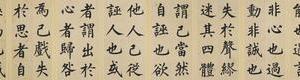 非心也過
動非誠也
失於聲繆
迷其四體
謂己當然
自誣也欲
他人己從
誣人也或
者謂出於
心者歸咎
為己戲失
於思者自